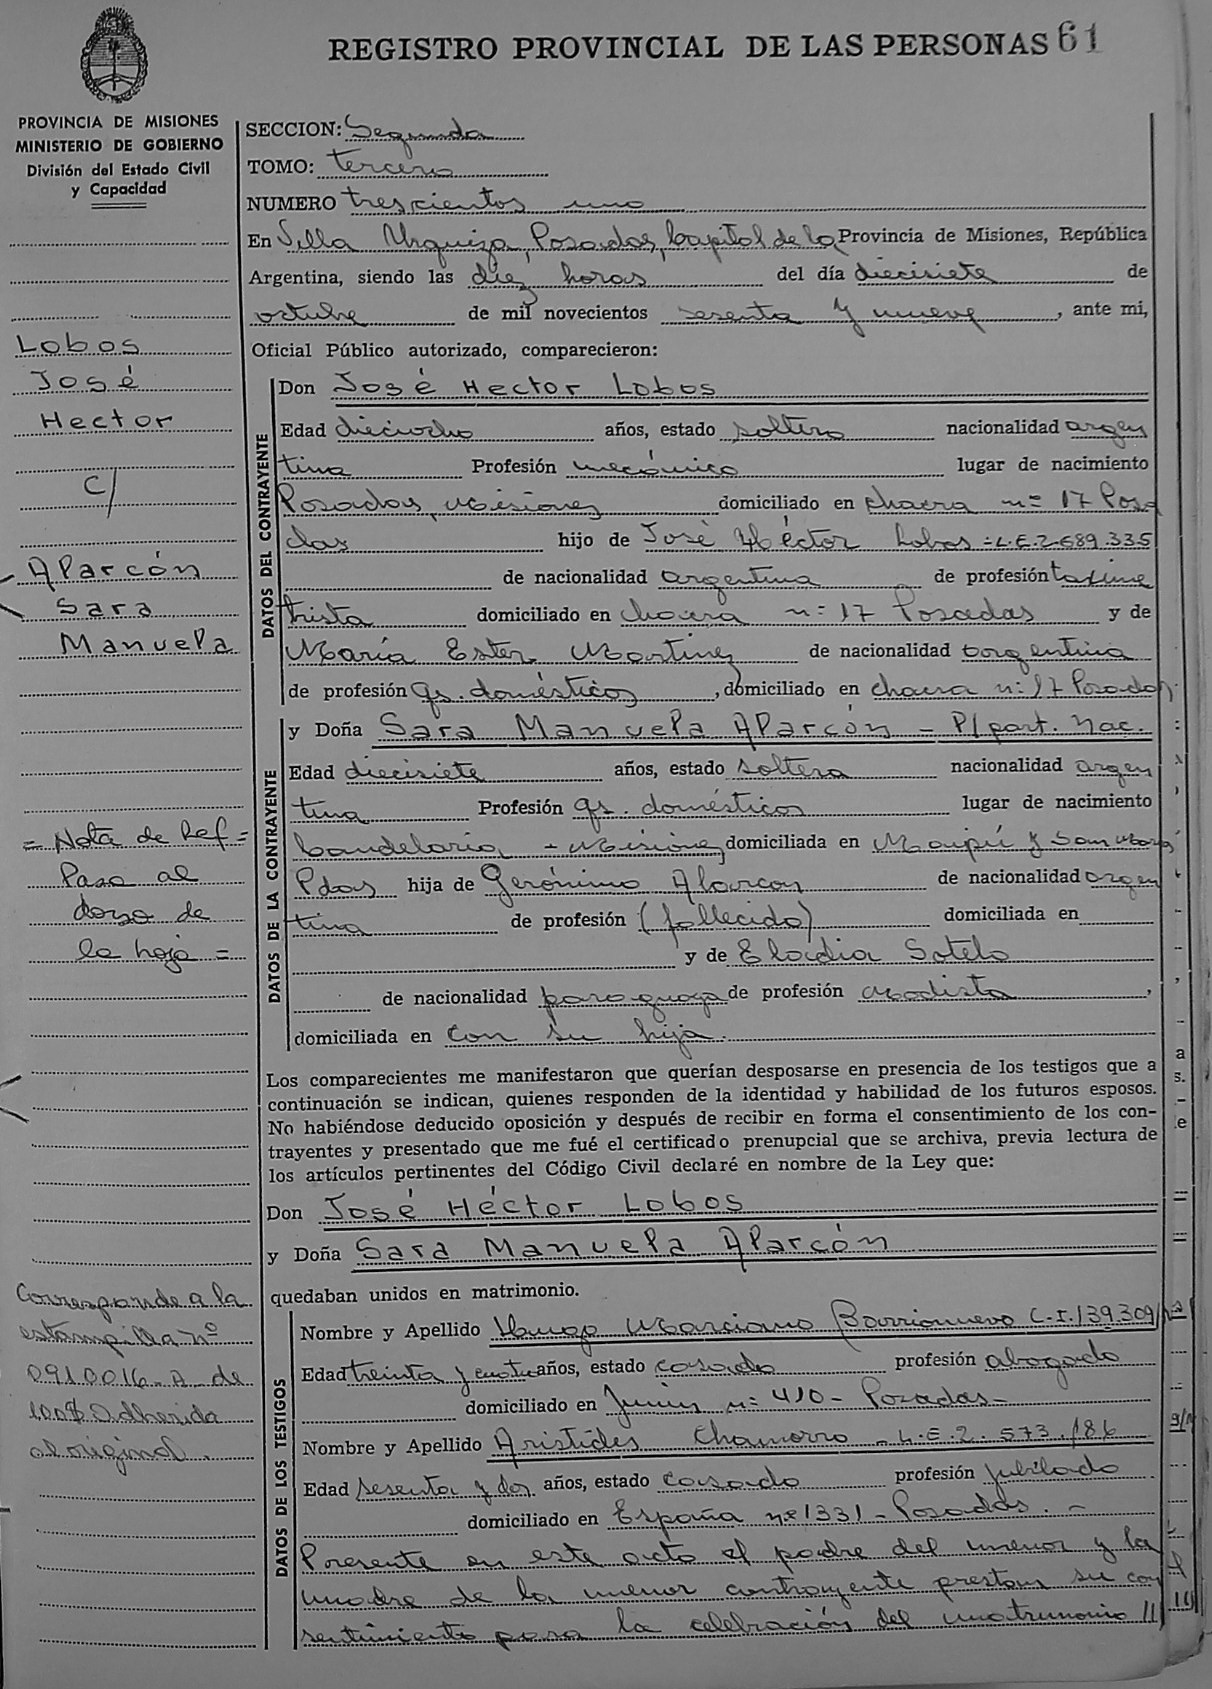 REGISTRO PROVINCIAL DE LAS PERSONAS 61
PROVINCIA DE MISIONES
MINISTERIO DE GOBIERNO
División del Estado Civil
y Capacidad
Lobos
José
Hector
C/
Alarcón
Sara
Manuela
= Nota de Ref =
Pasa al
dorso de
la hoja =
Corresponde a la
estampilla nº
0910016-A de
100$ Adherida
al original.
SECCION: Segunda
TOMO: tercero
NUMERO trescientos uno
En Villa Urquiza, Posadas, Capital de la Provincia de Misiones, República
Argentina, siendo las diez horas del día diecisiete de
octubre de mil novecientos sesenta y nueve, ante mi,
Oficial Público autorizado, comparecieron:
DATOS DEL CONTRAYENTE
Don José Hector Lobos
Edad dieciocho años, estado soltero nacionalidad argen
tina Profesión mecánico lugar de nacimiento
Posadas, Misiones domiciliado en chacra n= 17 Posa
das hijo de José Héctor Lobos =L.E.2.689.335
de nacionalidad argentina de profesión taxime
trista domiciliado en chacra n= 17 Posadas y de
María Ester Martinez de nacionalidad argentina
de profesión qs. domésticos, domiciliado en chacra n= 17 Posadas
DATOS DE LA CONTRAYENTE
y Doña Sara Manuela Alarcón - P/part. Nac.
Edad diecisiete años, estado soltera nacionalidad argen
tina Profesión qs. domésticos lugar de nacimiento
Candelaria - Misiones domiciliada en Maipú y San
Pdas hija de Gerónimo Alarcon de nacionalidad argen
tina de profesión (fallecido) domiciliada en
y de Eladia Sotelo
de nacionalidad paraguaya de profesión Modista,
domiciliada en con su hija.
Los comparecientes me manifestaron que querían desposarse en presencia de los testigos que a
continuación se indican, quienes responden de la identidad y habilidad de los futuros esposos.
No habiéndose deducido oposición y después de recibir en forma el consentimiento de los con-
trayentes y presentado que me fué el certificado prenupcial que se archiva, previa lectura de
los artículos pertinentes del Código Civil declaré en nombre de la Ley que:
Don José Héctor Lobos
y Doña Sara Manuela Alarcón
quedaban unidos en matrimonio.
DATOS DE LOS TESTIGOS
Nombre y Apellido Hugo Marciano Barrionuevo C.I.139.309
Edad treinta y cuatro años, estado casado profesión abogado
domiciliado en Junin n= 410 - Posadas -
Nombre y Apellido Aristides Chamorro - L.E.2.573.186
Edad sesenta y dos años, estado casado profesión jubilado
domiciliado en España nº 1331 - Posadas. -
Presente en este acto el padre del menor y la
madre de la menor contrayente prestan su con
sentimiento para la celebración del matrimonio //